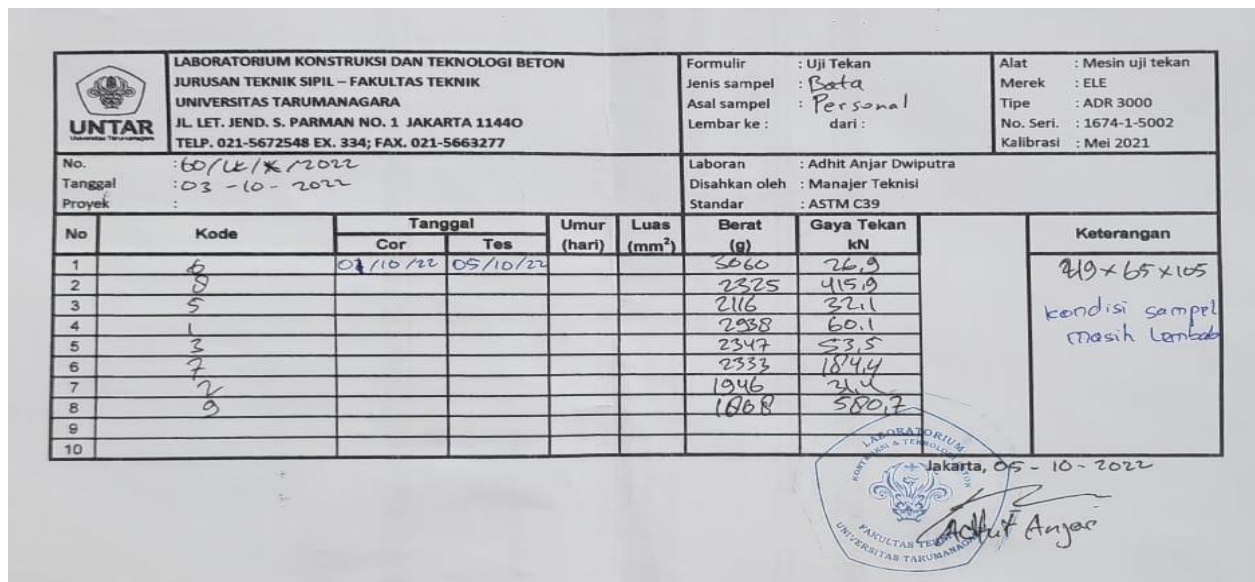 UNTAR
Universitas Tarumanagara
LABORATORIUM KONSTRUKSI DAN TEKNOLOGI BETON
JURUSAN TEKNIK SIPIL – FAKULTAS TEKNIK
UNIVERSITAS TARUMANAGARA
JL. LET. JEND. S. PARMAN NO. 1 JAKARTA 11440
TELP. 021-5672548 EX. 334; FAX. 021-5663277
Formulir : Uji Tekan
Jenis sampel : Bata
Asal sampel : Personal
Lembar ke : dari :
Alat : Mesin uji tekan
Merek : ELE
Tipe : ADR 3000
No. Seri. : 1674-1-5002
Kalibrasi : Mei 2021
No. : 60/LK/X/2022
Tanggal : 03-10-2022
Proyek :
Laboran : Adhit Anjar Dwiputra
Disahkan oleh : Manajer Teknisi
Standar : ASTM C39
No Kode Tanggal Umur Luas Berat Gaya Tekan Keterangan
Cor Tes (hari) (mm²) (g) kN
1 6 /10/22 05/10/22 3060 26,9
2 8 2325 415,9
3 5 2116 32,1
4 1 2938 60,1
5 3 2347 53,5
6 7 2333 184,4
7 2 1946
8 9 580,7
9
10
219 x 65 x 105
kondisi sampel
masih lembab
LABORATORIUM
KONSTRUKSI & TEKNOLOGI BETON
FAKULTAS TEKNIK
UNIVERSITAS TARUMANAGARA
Jakarta, 05-10-2022
Adhit Anjar